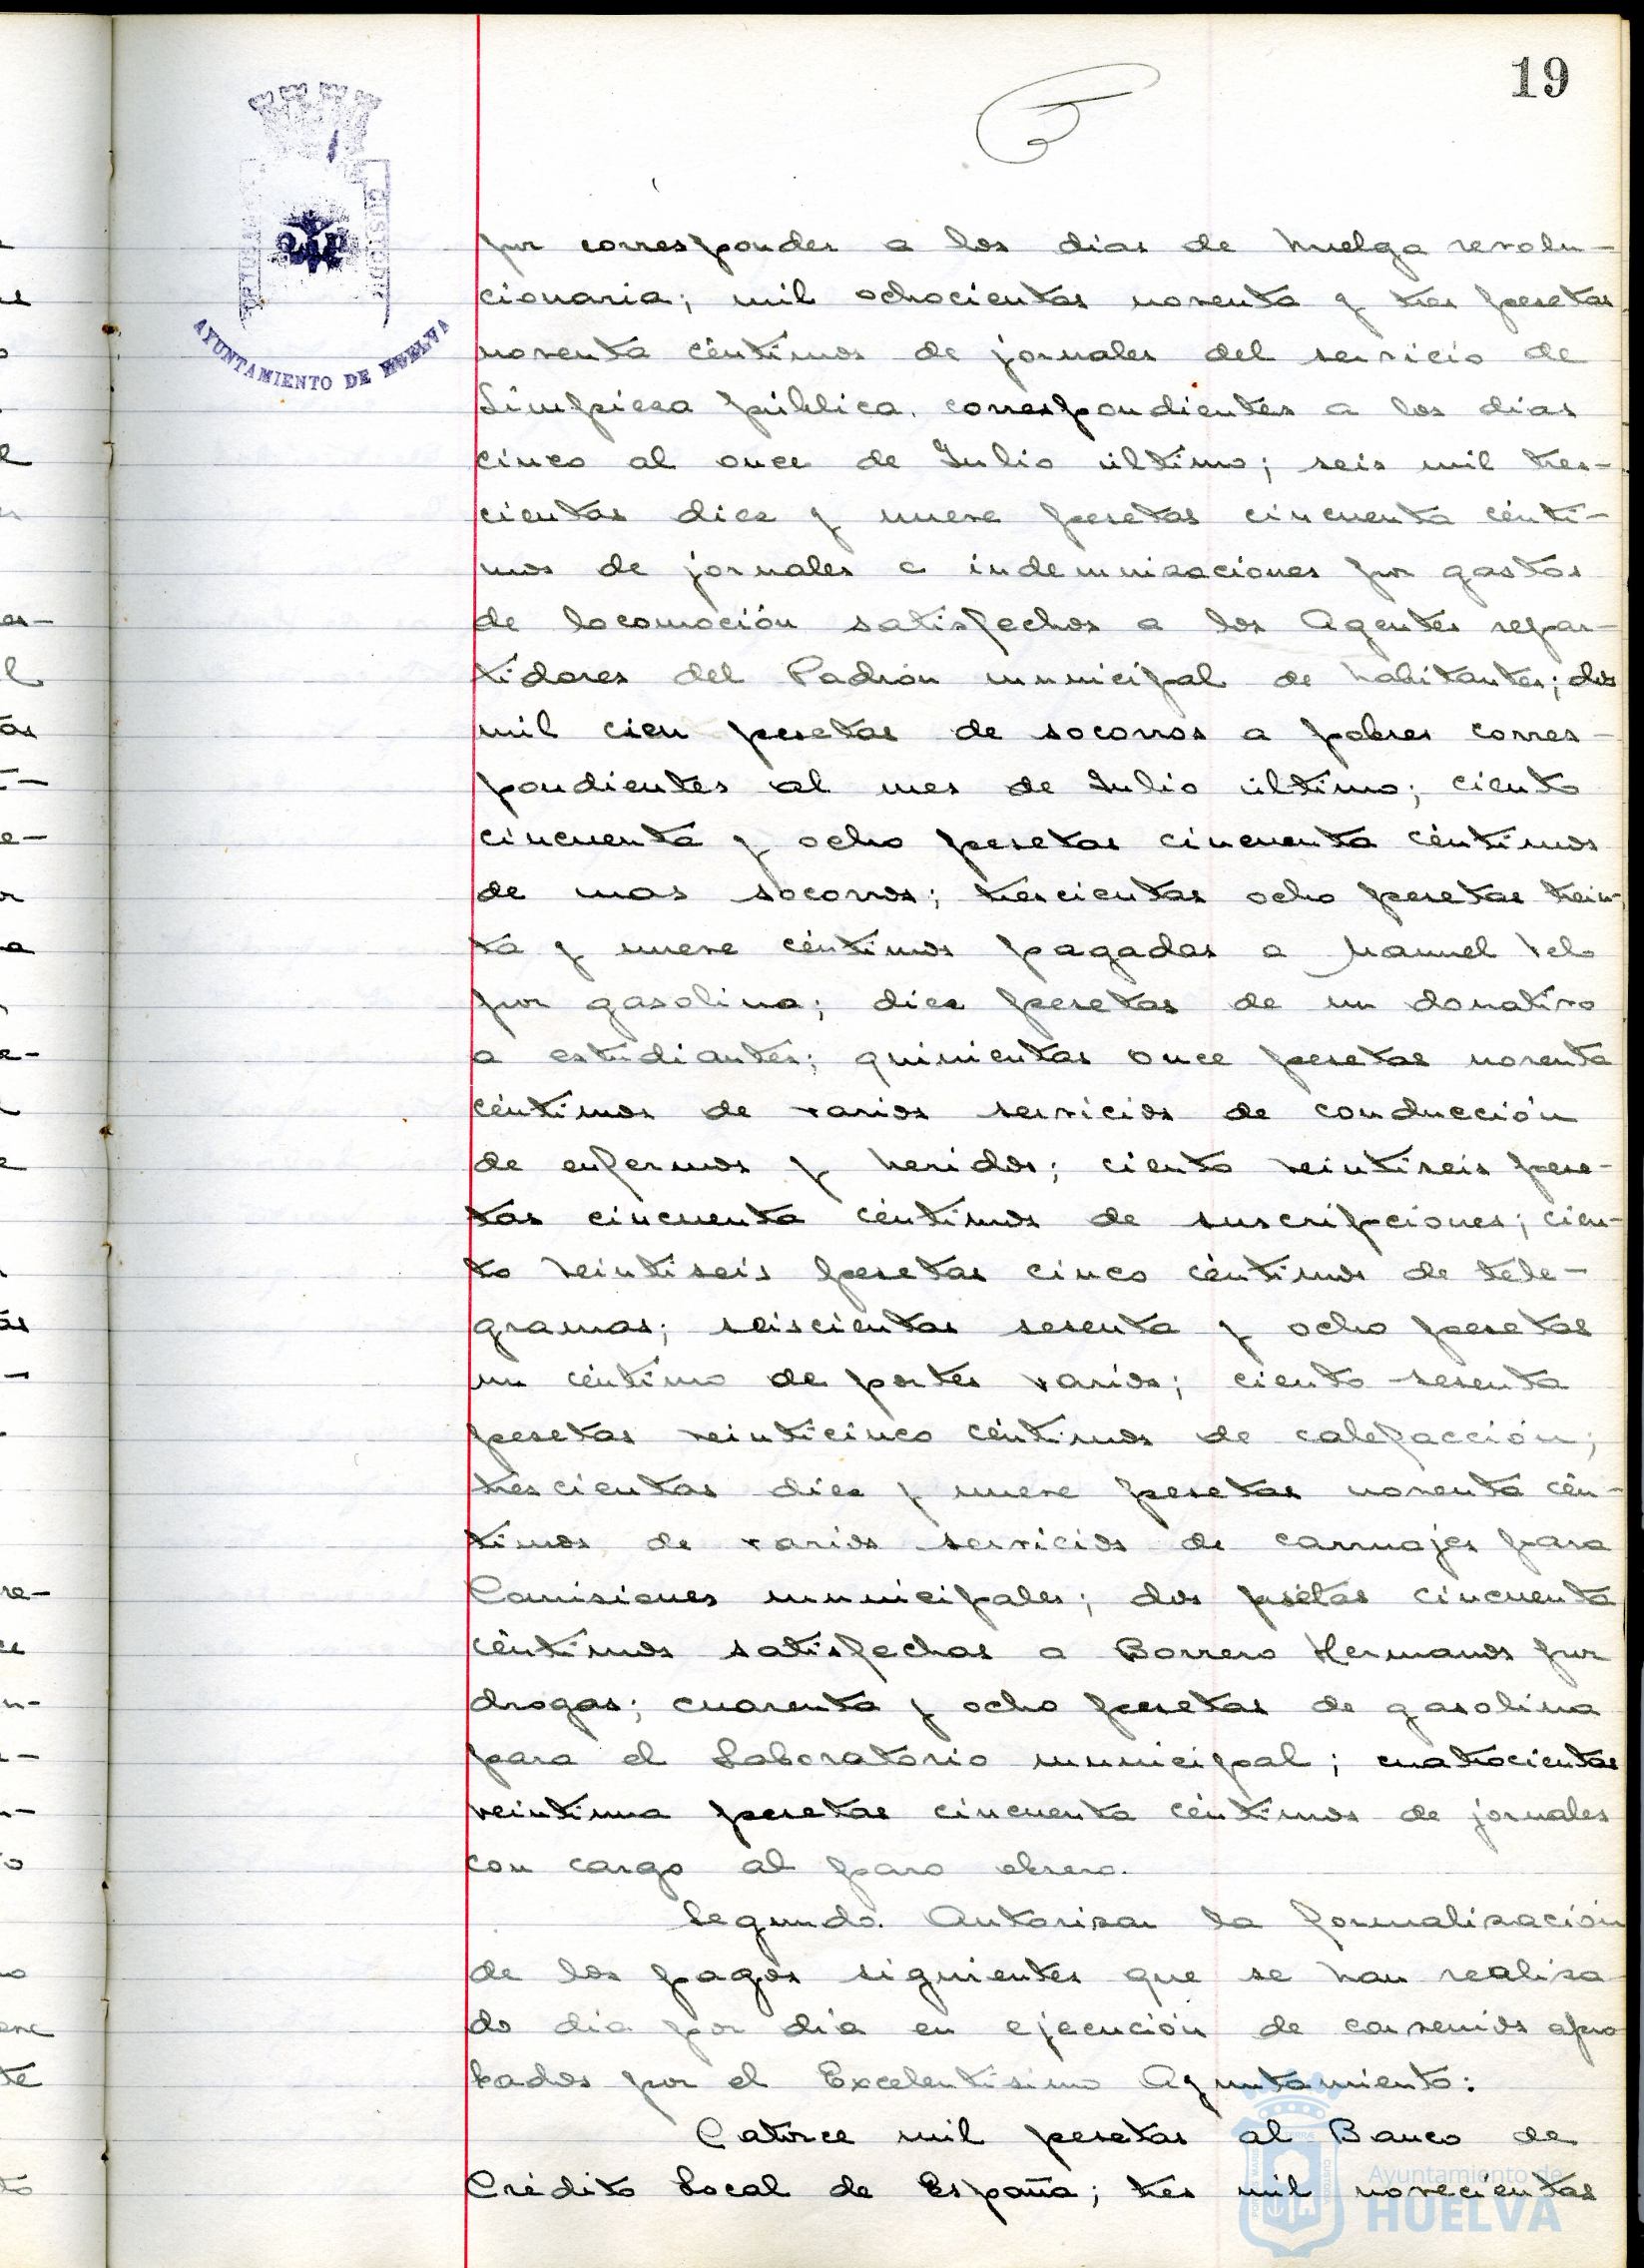 19
por corresponder a los dias de huelga revolu-
cionaria; mil ochocientas noventa y tres pesetas
noventa céntimos de jornales del servicio de
Limpieza pública, correspondientes a los dias
cinco al once de Julio último; seis mil tres-
cientas diez y nueve pesetas cincuenta cénti-
mos de jornales e indemnizaciones por gastos
de locomoción satisfechos a los Agentes repar-
tidores del Padrón municipal de habitantes; dos
mil cien pesetas de socorros a pobres corres-
pondientes al mes de Julio último; ciento
cincuenta y ocho pesetas cincuenta céntimos
de mas socorros; trescientas ocho pesetas trein-
ta y nueve céntimos pagadas a Manuel Velo
por gasolina; diez pesetas de un donativo
a estudiantes; quinientas once pesetas noventa
céntimos de varios servicios de conducción
de enfermos y heridos; ciento veintiseis pese-
tas cincuenta céntimos de suscripciones; cien-
to veintiseis pesetas cinco céntimos de tele-
gramas; seiscientas sesenta y ocho pesetas
un céntimo de portes varios; ciento sesenta
pesetas veinticinco céntimos de calefacción;
trescientas diez y nueve pesetas noventa cén-
timos de varios servicios de carruajes para
Comisiones municipales; dos psetas cincuenta
céntimos satisfechas a Borrero Hermanos por
drogas; cuarenta y ocho pesetas de gasolina
para el Laboratorio municipal; cuatrocientas
veintiuna pesetas cincuenta céntimos de jornales
con cargo al paro obrero.
Segundo. Autorizar la formalización
de los pagos siguientes que se han realiza
do dia por dia en ejecución de convenios apro
bados por el Excelentísimo Ayuntamiento:
Catorce mil pesetas al Banco de
Crédito Local de España; tres mil novecientas
AYUNTAMIENTO DE HUELVA
Ayuntamiento de
HUELVA